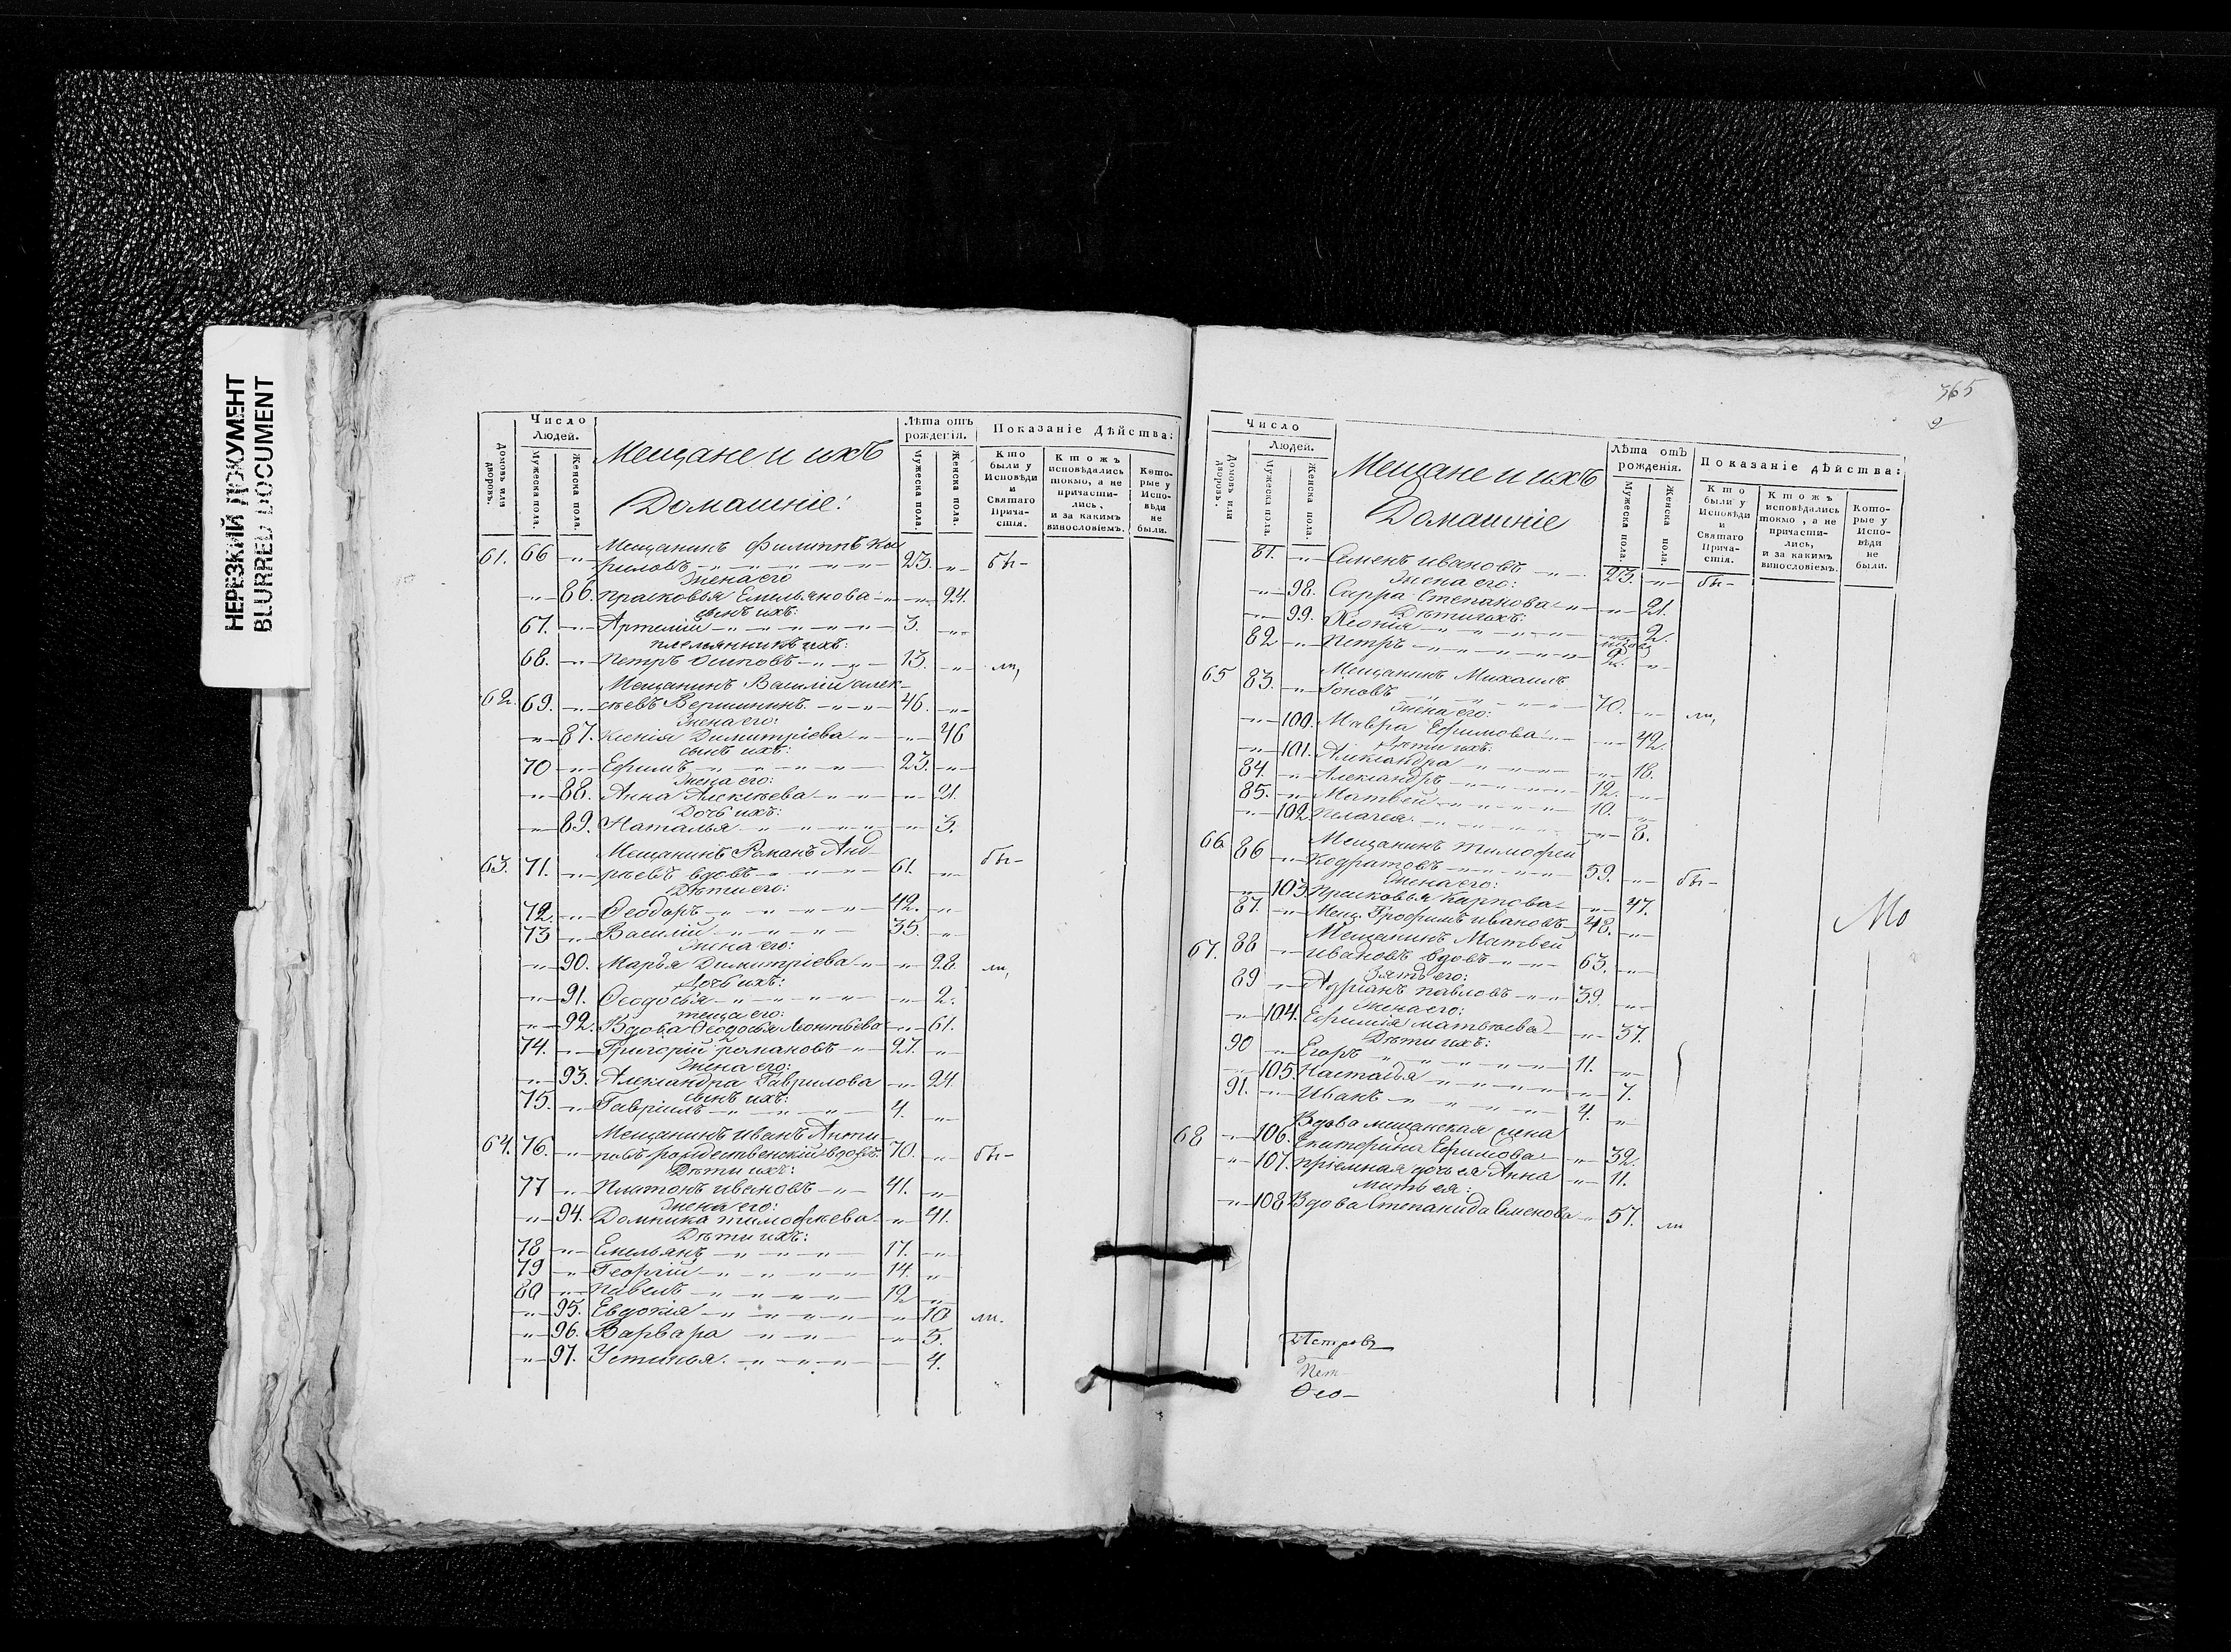 НЕРЕЗКИЙ ДОКУМЕНТ
BLURRED DOCUMENT
Число
Людей.
Домовъ или дворовъ.
Мужеска пола.
Женска пола.
Мещане и ихъ
Домашніе:
Лѣта отъ рожденія.
Мужеска пола.
Женска пола.
Показаніе Дѣйства:
Кто были у Исповѣди и Святаго Прича-стія.
Ктожъ исповѣдались токмо, а не причасти-лись, и за какимъ винословіемъ.
Кото-рые у Испо-вѣди не были.
61. 66 -"- Мещанинъ Филиппъ Ки
риловъ 23. -"- бы-
Жена его
-"- 86. Прасковья Емельянова -"- 24.
сынъ ихъ:
67. -"- Артемій 3. -"-
племянникъ ихъ:
68. -"- Петръ Осиповъ 13. -"- ли,
Мещанинъ Василій алек-
62. 69. -"- сѣевъ Вершининъ 46. -"-
Жена его:
-"- 87. Ксенія Димитріева -"- 46
сынъ ихъ:
70 -"- Ефимъ 23. -"-
Жена его:
-"- 88. Анна Алексѣева -"- 21.
Дочь ихъ:
-"- 89. Наталья -"- 3.
Мещанинъ Романъ Анд-
63. 71. -"- рѣевъ вдовъ 61. -"- бы-
Дѣти его:
72. -"- Ѳеодоръ 42. -"-
73 -"- Василій 35. -"-
Жена его:
-"- 90. Марья Димитріева -"- 28. ли,
Дочь ихъ:
-"- 91. Ѳеодосья -"- 2.
теща его:
-"- 92. Вдова Ѳеодосья Леонтьева -"- 61.
74. -"- Григорій романовъ 27. -"-
Жена его:
-"- 93. Александра Гаврилова -"- 24.
сынъ ихъ:
75. -"- Гавріилъ 4. -"-
Мещанинъ Иванъ Анти
64. 76. -"- повъ рождественскій вдовъ 70. -"- бы-
Дѣти ихъ:
77 -"- Платонъ ивановъ 41. -"-
Жена его:
-"- 94. Домника тимофѣева -"- 41.
Дѣти ихъ:
78 -"- Емельянъ 17. -"-
79 -"- Георгій 14. -"-
80 -"- Павелъ 12 -"-
-"- 95. Евдокія -"- 10 ли.
-"- 96. Варвара -"- 5.
-"- 97. Устинья 4.
365
9
Число
Людей.
Домовъ или дворовъ.
Мужеска пола.
Женска пола.
Мещане и ихъ
Домашніе
Лѣта отъ рожденія.
Мужеска пола.
Женска пола.
Показаніе дѣйства:
Кто были у Исповѣди и Святаго Прича-стія.
Ктожъ исповѣдались токмо, а не причасти-лись, и за какимъ винословіемъ.
Кото-рые у Испо-вѣди не были.
81. -"- Семенъ ивановъ 23. -"- бы-
Жена его:
-"- 98. Сарра Степанова -"- 21.
Дѣти ихъ:
-"- 99. Хіонія -"- 2.
82 -"- Петръ 2. -"-
Мещанинъ Михаилъ
65 83. -"- Іоновъ 70. -"- ли,
Жена его:
-"- 100. Мавра Ефимова -"- 42.
Дѣти ихъ:
-"- 101. Александра -"- 18.
84. -"- Александръ 12. -"-
85. -"- Матвей 10. -"-
-"- 102 Пелагея -"- 8.
Мещанинъ тимофей
66 86 -"- Кодратовъ 59. -"- бы-
Жена его:
-"- 103 Прасковья Карпова -"- 47.
87. -"- Мещ. Трофимъ ивановъ 48. -"-
Мещанинъ Матвей
67. 88 -"- ивановъ вдовъ 63. -"-
Зять его:
89 -"- Адріанъ павловъ 39. -"-
Жена его:
-"- 104. Ефимія матвѣева -"- 37.
Дѣти ихъ:
90 -"- Егоръ 11. -"-
-"- 105. Настасья -"- 7.
91. -"- Иванъ 4. -"-
Вдова мещанская жена
68 -"- 106. Екатерина Ефимова -"- 32.
-"- 107. пріемная дочь ея Анна -"- 11.
Мать ея:
-"- 108 Вдова Степанида Семенова -"- 57. ли
Мо
Петровъ
Пет-
Ѳео-